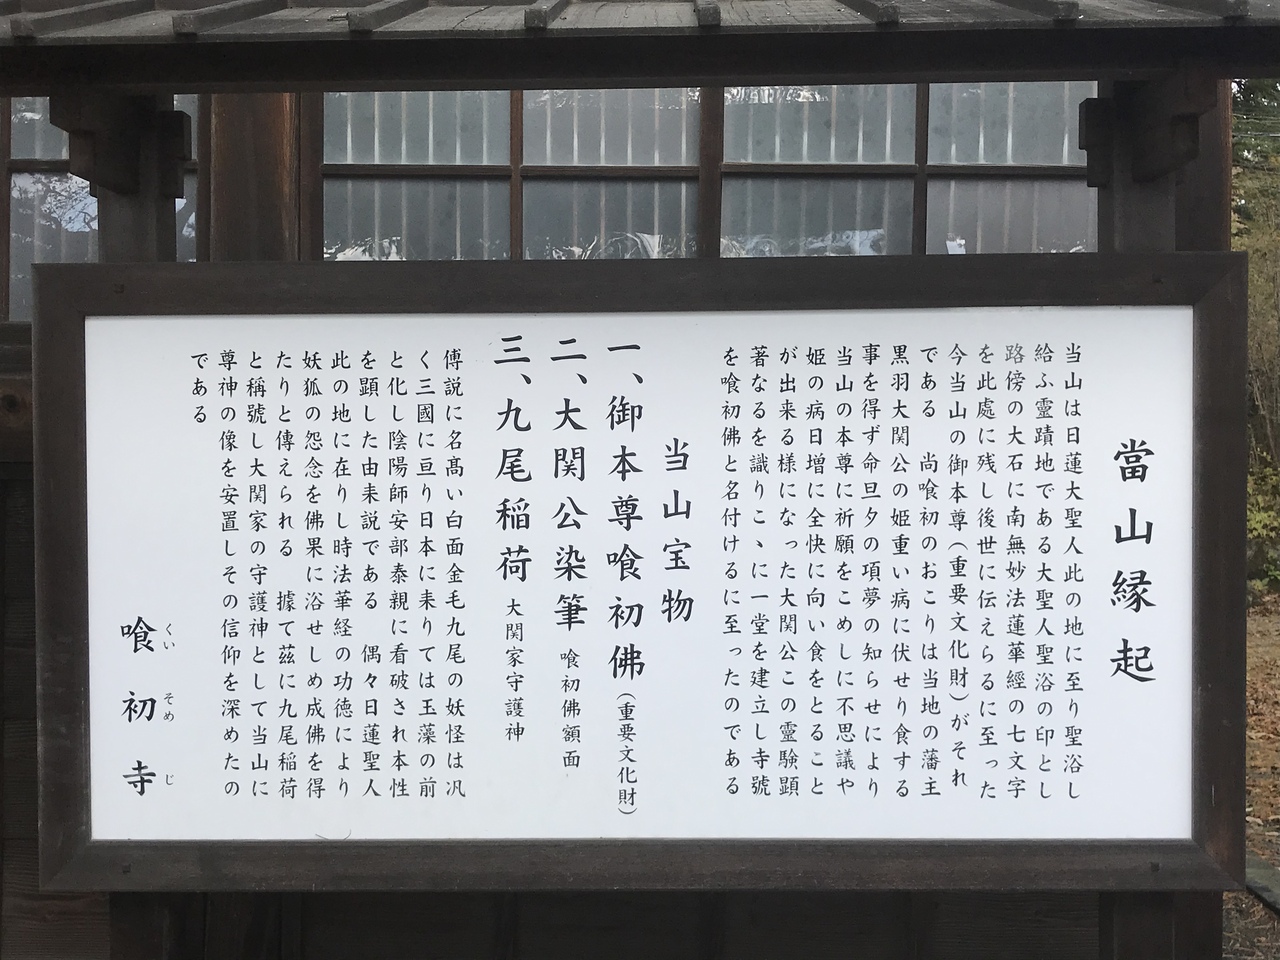 當山縁起
当山は日蓮大聖人此の地に至り聖浴し
給ふ靈蹟地である大聖人聖浴の印とし
路傍の大石に南無妙法蓮華經の七文字
を此處に残し後世に伝えらるに至った
今当山の御本尊(重要文化財)がそれ
である　尚喰初のおこりは当地の藩主
黒羽大関公の姫重い病に伏せり食する
事を得ず命旦夕の項夢の知らせにより
当山の本尊に祈願をこめしに不思議や
姫の病日増に全快に向い食をとること
が出来る様になった大関公この靈験顕
著なるを識りこゝに一堂を建立し寺號
を喰初佛と名付けるに至ったのである
当山宝物
一、御本尊喰初佛(重要文化財)
二、大関公染筆 喰初佛額面
三、九尾稲荷 大関家守護神
傳説に名髙い白面金毛九尾の妖怪は汎
く三國に亘り日本に耒りては玉藻の前
と化し陰陽師安部泰親に看破され本性
を顕した由耒説である　偶々日蓮聖人
此の地に在りし時法華経の功徳により
妖狐の怨念を佛果に浴せしめ成佛を得
たりと傳えられる　據て茲に九尾稲荷
と稱號し大関家の守護神として当山に
尊神の像を安置しその信仰を深めたの
である
喰初寺
くいそめじ